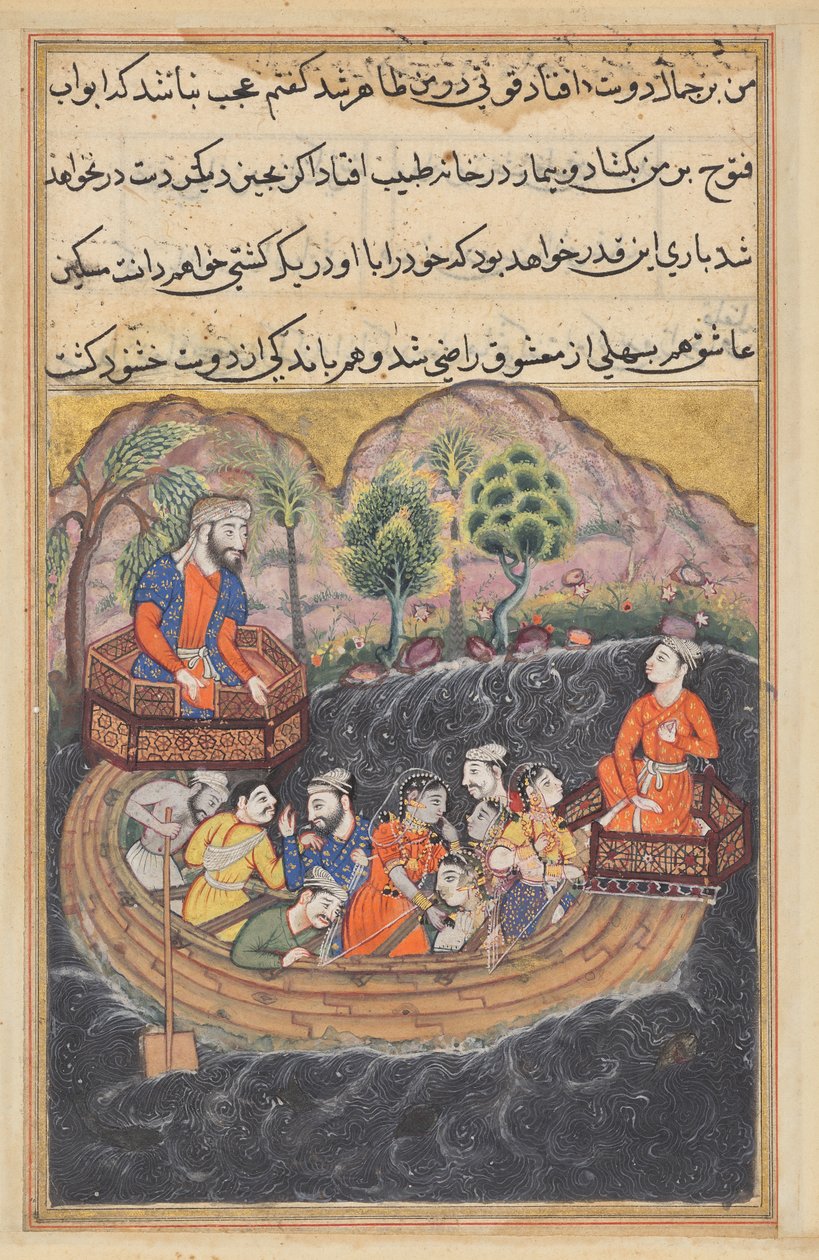 من بر جمال دوست افتاد قوتی در من ظاهر شد گفتم عجب نباشد که ابواب
فتوح بر من بکشاد و بیمار در خانه طبیب افتاد اکر بچیز دیکر دست در نخواهد
شد باری این قدر خواهد بود که خود را با او در یک کشتی خواهم دانت مسکین
عاشق هم بسهلی از معشوق راضی شد و هم باندکی از دوست خشنود کشت